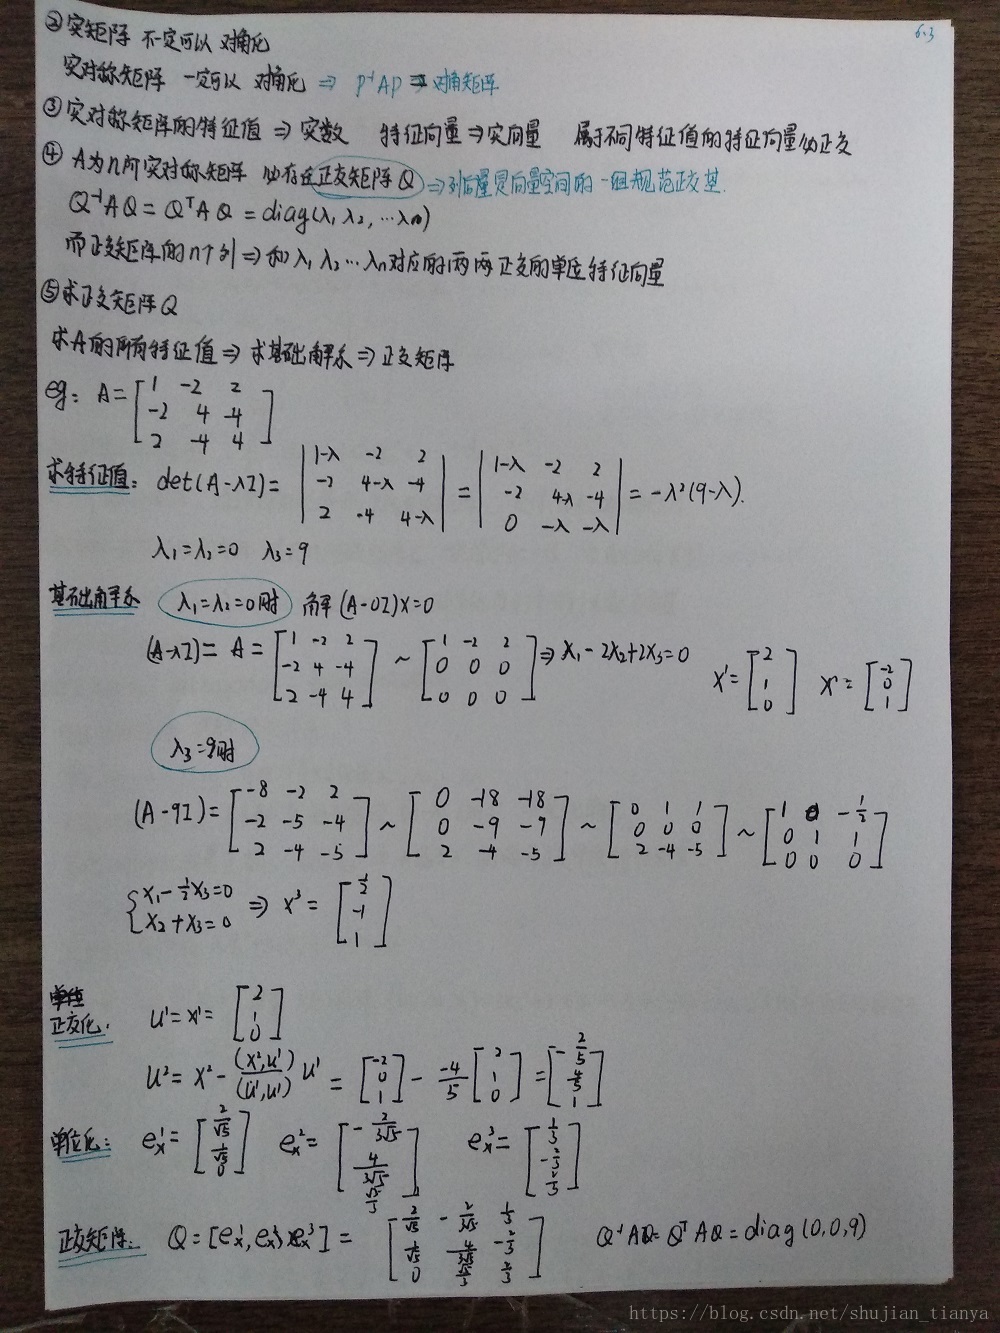 6.3
②实矩阵 不一定可以 对角化
实对称矩阵 一定可以 对角化 ⇒ P⁻¹AP ⇒ 对角矩阵
③实对称矩阵的特征值 ⇒ 实数 特征向量 ⇒ 实向量 属于不同特征值的特征向量必正交
④ A为n阶实对称矩阵 必存在正交矩阵Q ⇒列向量是向量空间的一组规范正交基.
Q⁻¹AQ = QᵀAQ = diag(λ₁, λ₂, ⋯λn)
而正交矩阵的n个列 ⇒ 和λ₁ λ₂ ⋯ λn对应的两两正交的单位特征向量
⑤求正交矩阵Q
求A的所有特征值 ⇒ 求基础解系 ⇒ 正交矩阵
eg: A = [1 -2 2; -2 4 -4; 2 -4 4]
求特征值: det(A-λI) = |1-λ -2 2; -2 4-λ -4; 2 -4 4-λ| = |1-λ -2 2; -2 4-λ -4; 0 -λ -λ| = -λ²(9-λ).
λ₁=λ₂=0 λ₃=9
基础解系 λ₁=λ₂=0时 解(A-0I)X=0
(A-λI) = A = [1 -2 2; -2 4 -4; 2 -4 4] ~ [1 -2 2; 0 0 0; 0 0 0] ⇒ x₁-2x₂+2x₃=0 x¹=[2; 1; 0] x²=[-2; 0; 1]
λ₃=9时
(A-9I) = [-8 -2 2; -2 -5 -4; 2 -4 -5] ~ [0 -18 -18; 0 -9 -9; 2 -4 -5] ~ [0 1 1; 0 0 0; 2 -4 -5] ~ [1 0 -1/2; 0 1 1; 0 0 0]
{x₁-1/2x₃=0
x₂+x₃=0 ⇒ x³=[1/2; -1; 1]
正交化. u¹=x¹=[2; 1; 0]
u²=x²-(x²,u¹)/(u¹,u¹) u¹ = [-2; 0; 1] - -4/5 [2; 1; 0] = [-2/5; 4/5; 1]
单位化: eₓ¹=[2/√5; 1/√5; 0] eₓ²=[-2/3√5; 4/3√5; √5/3] eₓ³=[1/3; -2/3; 2/3]
正交矩阵: Q=[eₓ¹, eₓ², eₓ³] = [2/√5 -2/3√5 1/3; 1/√5 4/3√5 -2/3; 0 √5/3 2/3] Q⁻¹AQ=QᵀAQ=diag(0,0,9)
https://blog.csdn.net/shujian_tianya